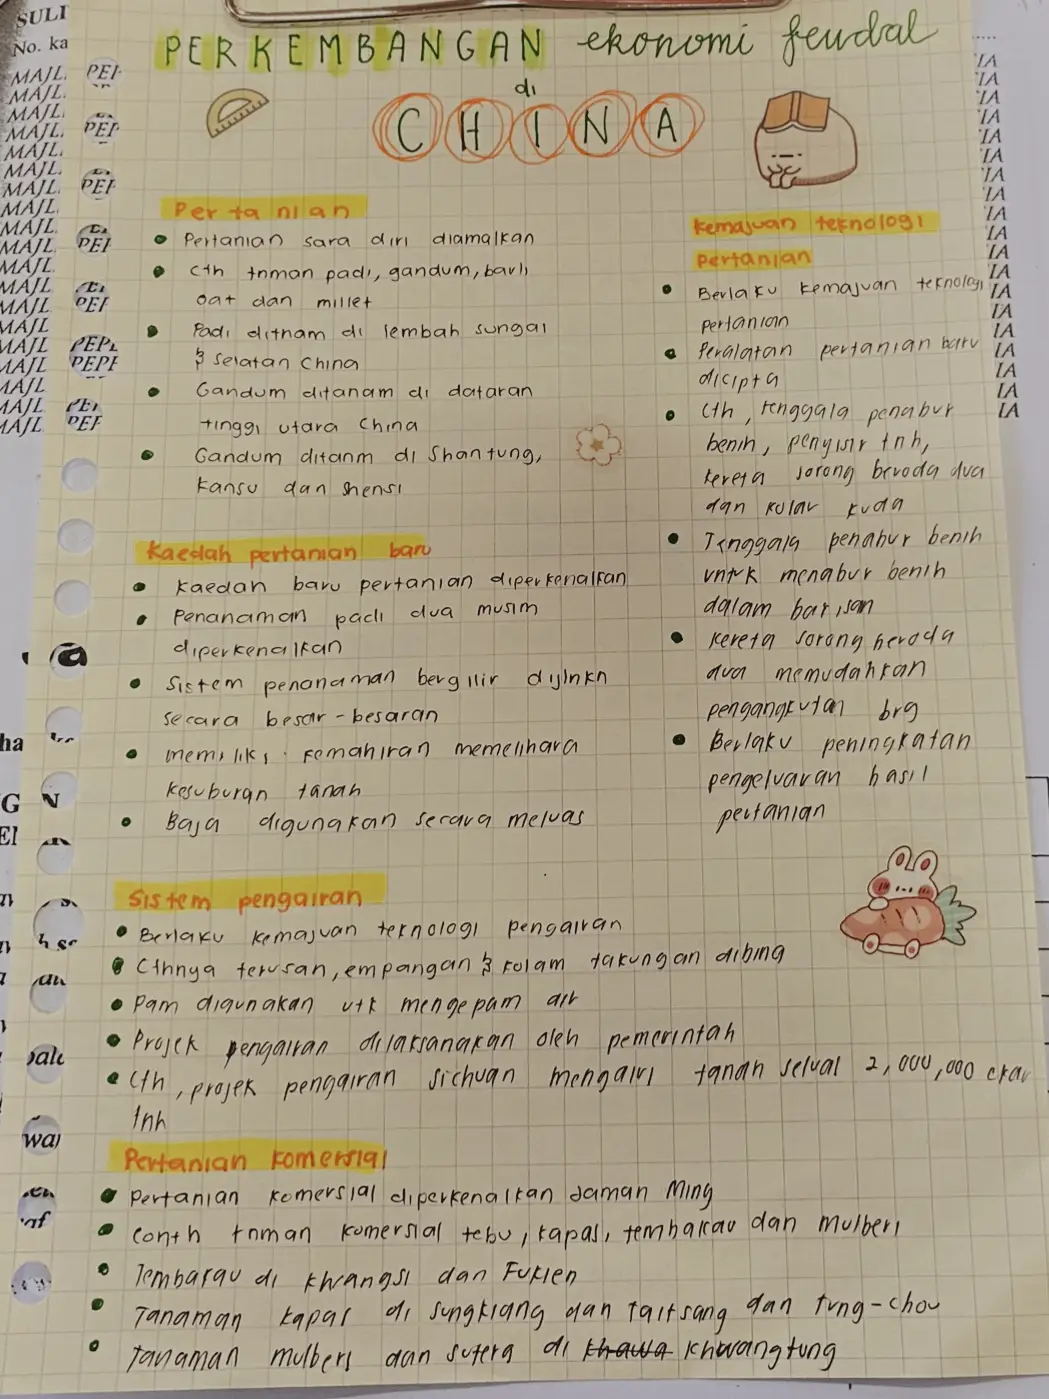 PERKEMBANGAN ekonomi feudal
di
CHINA
Pertanian
Pertanian sara diri diamalkan
Cth tnman padi, gandum, barli
oat dan millet
Padi ditnam di lembah sungai
& selatan China
Gandum ditanam di dataran
tinggi utara China
Gandum ditanm di Shantung,
Kansu dan Shensi
Kaedah pertanian baru
Kaedah baru pertanian diperkenalkan
Penanaman padi dua musim
diperkenalkan
Sistem penanaman bergilir dijlnkn
secara besar-besaran
memiliki kemahiran memelihara
kesuburan tanah
Baja digunakan secara meluas
Kemajuan teknologi
Pertanian
Berlaku kemajuan teknologi
pertanian
Peralatan pertanian baru
dicipta
Cth, tenggala penabur
benih, penyisir tnh,
kereta sorong beroda dua
dan kolar kuda
Tenggala penabur benih
untuk menabur benih
dalam barisan
Kereta sorong beroda
dua memudahkan
pengangkutan brg
Berlaku peningkatan
pengeluaran hasil
pertanian
Sistem pengairan
Berlaku kemajuan teknologi pengairan
Cthnya terusan, empangan & kolam takungan dibina
Pam digunakan utk mengepam air
Projek pengairan dilaksanakan oleh pemerintah
Cth, projek pengairan Sichuan mengairi tanah seluas 2,000,000 ekar
tnh
Pertanian komersial
Pertanian komersial diperkenalkan zaman Ming
Conth tnman komersial tebu, kapas, tembakau dan mulberi
Tembakau di Khwangsi dan Fukien
Tanaman kapas di Sungkiang dan Taitsang dan Tung-chou
Tanaman mulberi dan sutera di Khwangtung
SULI
No. ka
MAJL
MAJL
MAJL
MAJL
MAJL
MAJL
MAJL
MAJL
MAJL
MAJL
MAJL
MAJL
MAJL
MAJL
MAJL
MAJL
MAJL
MAJL
IA
IA
IA
IA
IA
IA
IA
IA
IA
IA
IA
IA
IA
IA
IA
IA
IA
IA